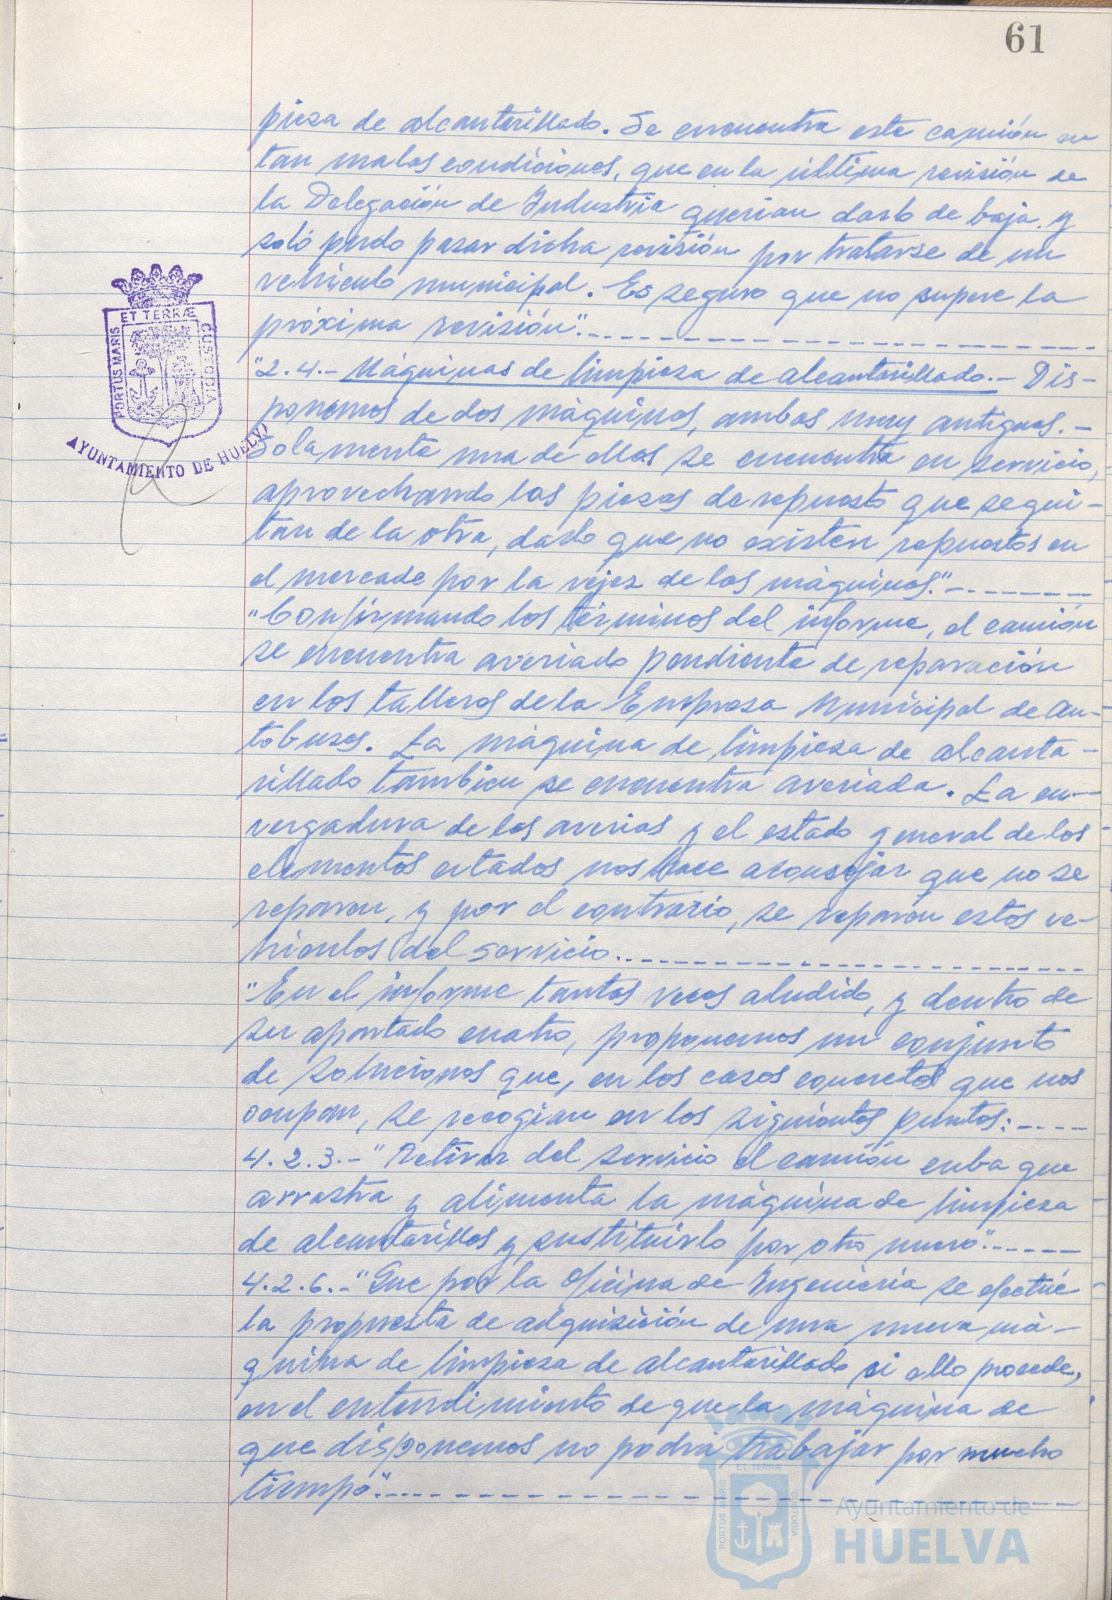 61
pieza de alcantarillado. Se encuentra este camión en
tan malas condiciones, que en la última revisión de
la Delegación de Industria querian darlo de baja y
soló pudo pasar dicha revisión por tratarse de un
vehiculo municipal. Es seguro que no supere la
próxima revisión".
"2.4.- Máquinas de limpieza de alcantarillado.- Dis-
ponemos de dos máquinas, ambas muy antiguas.-
Solamente una de ellas se encuentra en servicio,
aprovechando las piezas de repuesto que se qui-
tan de la otra, dado que no existen repuestos en
el mercado por la vejez de las máquinas".
"Confirmando los términos del informe, el camión
se encuentra averiado pendiente de reparación
en los talleres de la Empresa Municipal de Au-
tobuses. La máquina de limpieza de alcanta-
rillado tambien se encuentra averiada. La en-
vergadura de las averias y el estado general de los
elementos citados nos hace aconsejar que no se
reparen, y por el contrario, se reparen estos ve-
hiculos del servicio.
"En el informe tantas veces aludido, y dentro de
su apartado cuatro, proponemos un conjunto
de soluciones que, en los casos concretos que nos
ocupan, se recogian en los siguientes puntos:
4.2.3.- "Retirar del servicio el camión cuba que
arrastra y alimenta la máquina de limpieza
de alcantarillas y sustituirlo por otro nuevo".
4.2.6.- "Que por la Oficina de Ingenieria se efectúe
la propuesta de adquisición de una nueva má-
quina de limpieza de alcantarillado si ello procede,
en el entendimiento de que la máquina de
que disponemos no podrá trabajar por mucho
tiempo".
PORTUS MARIS ET TERRÆ CUSTODIA
AYUNTAMIENTO DE HUELVA
PORTUS MARIS ET TERRÆ CUSTODIA
Ayuntamiento de
HUELVA